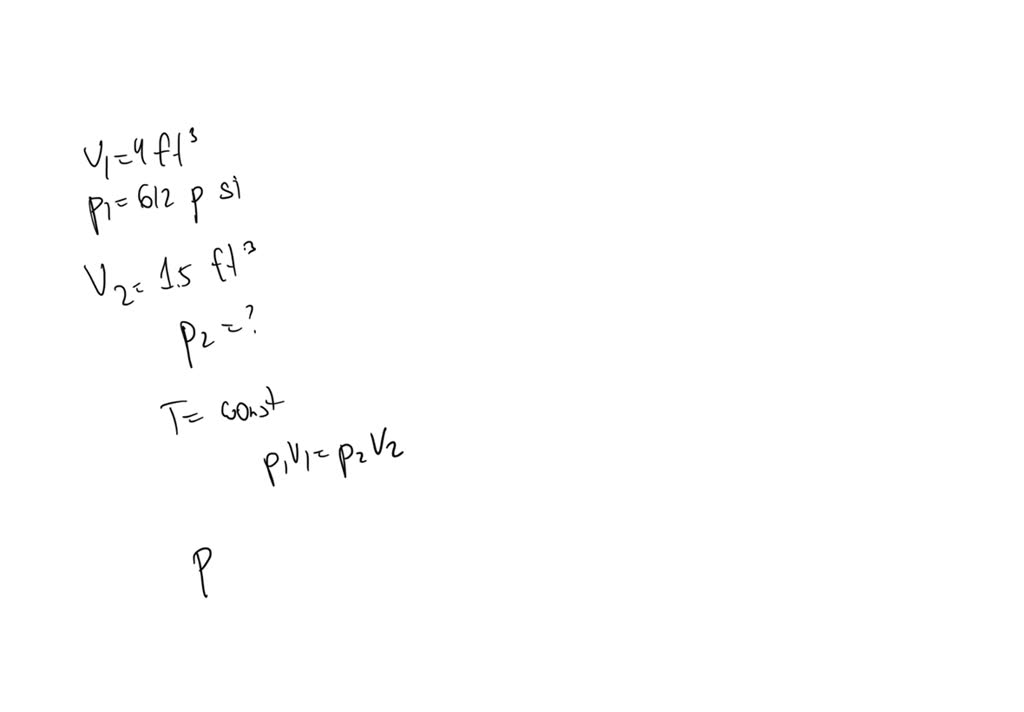 V₁=4 ft³
p₁=612 p si
V₂= 1.5 ft³
p₂=?
T= const
p₁V₁=p₂V₂
p